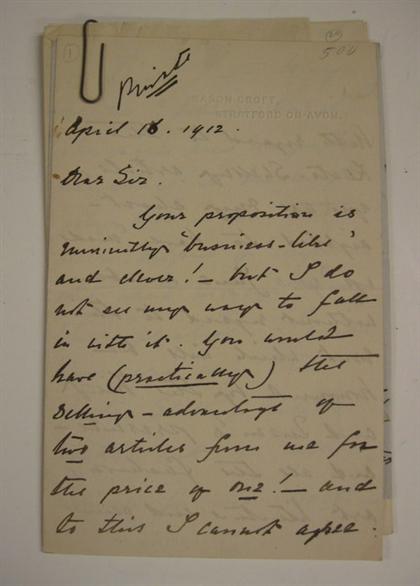 1
504
Private
MASON CROFT,
STRATFORD-ON-AVON.
April 16. 1912.
Dear Sir.
Your proposition is
eminently "business-like"
and clever! – but I do
not see my way to fall
in with it. You would
have (practically) the
selling – advantage of
two articles from me for
the price of one! – and
to this I cannot agree.